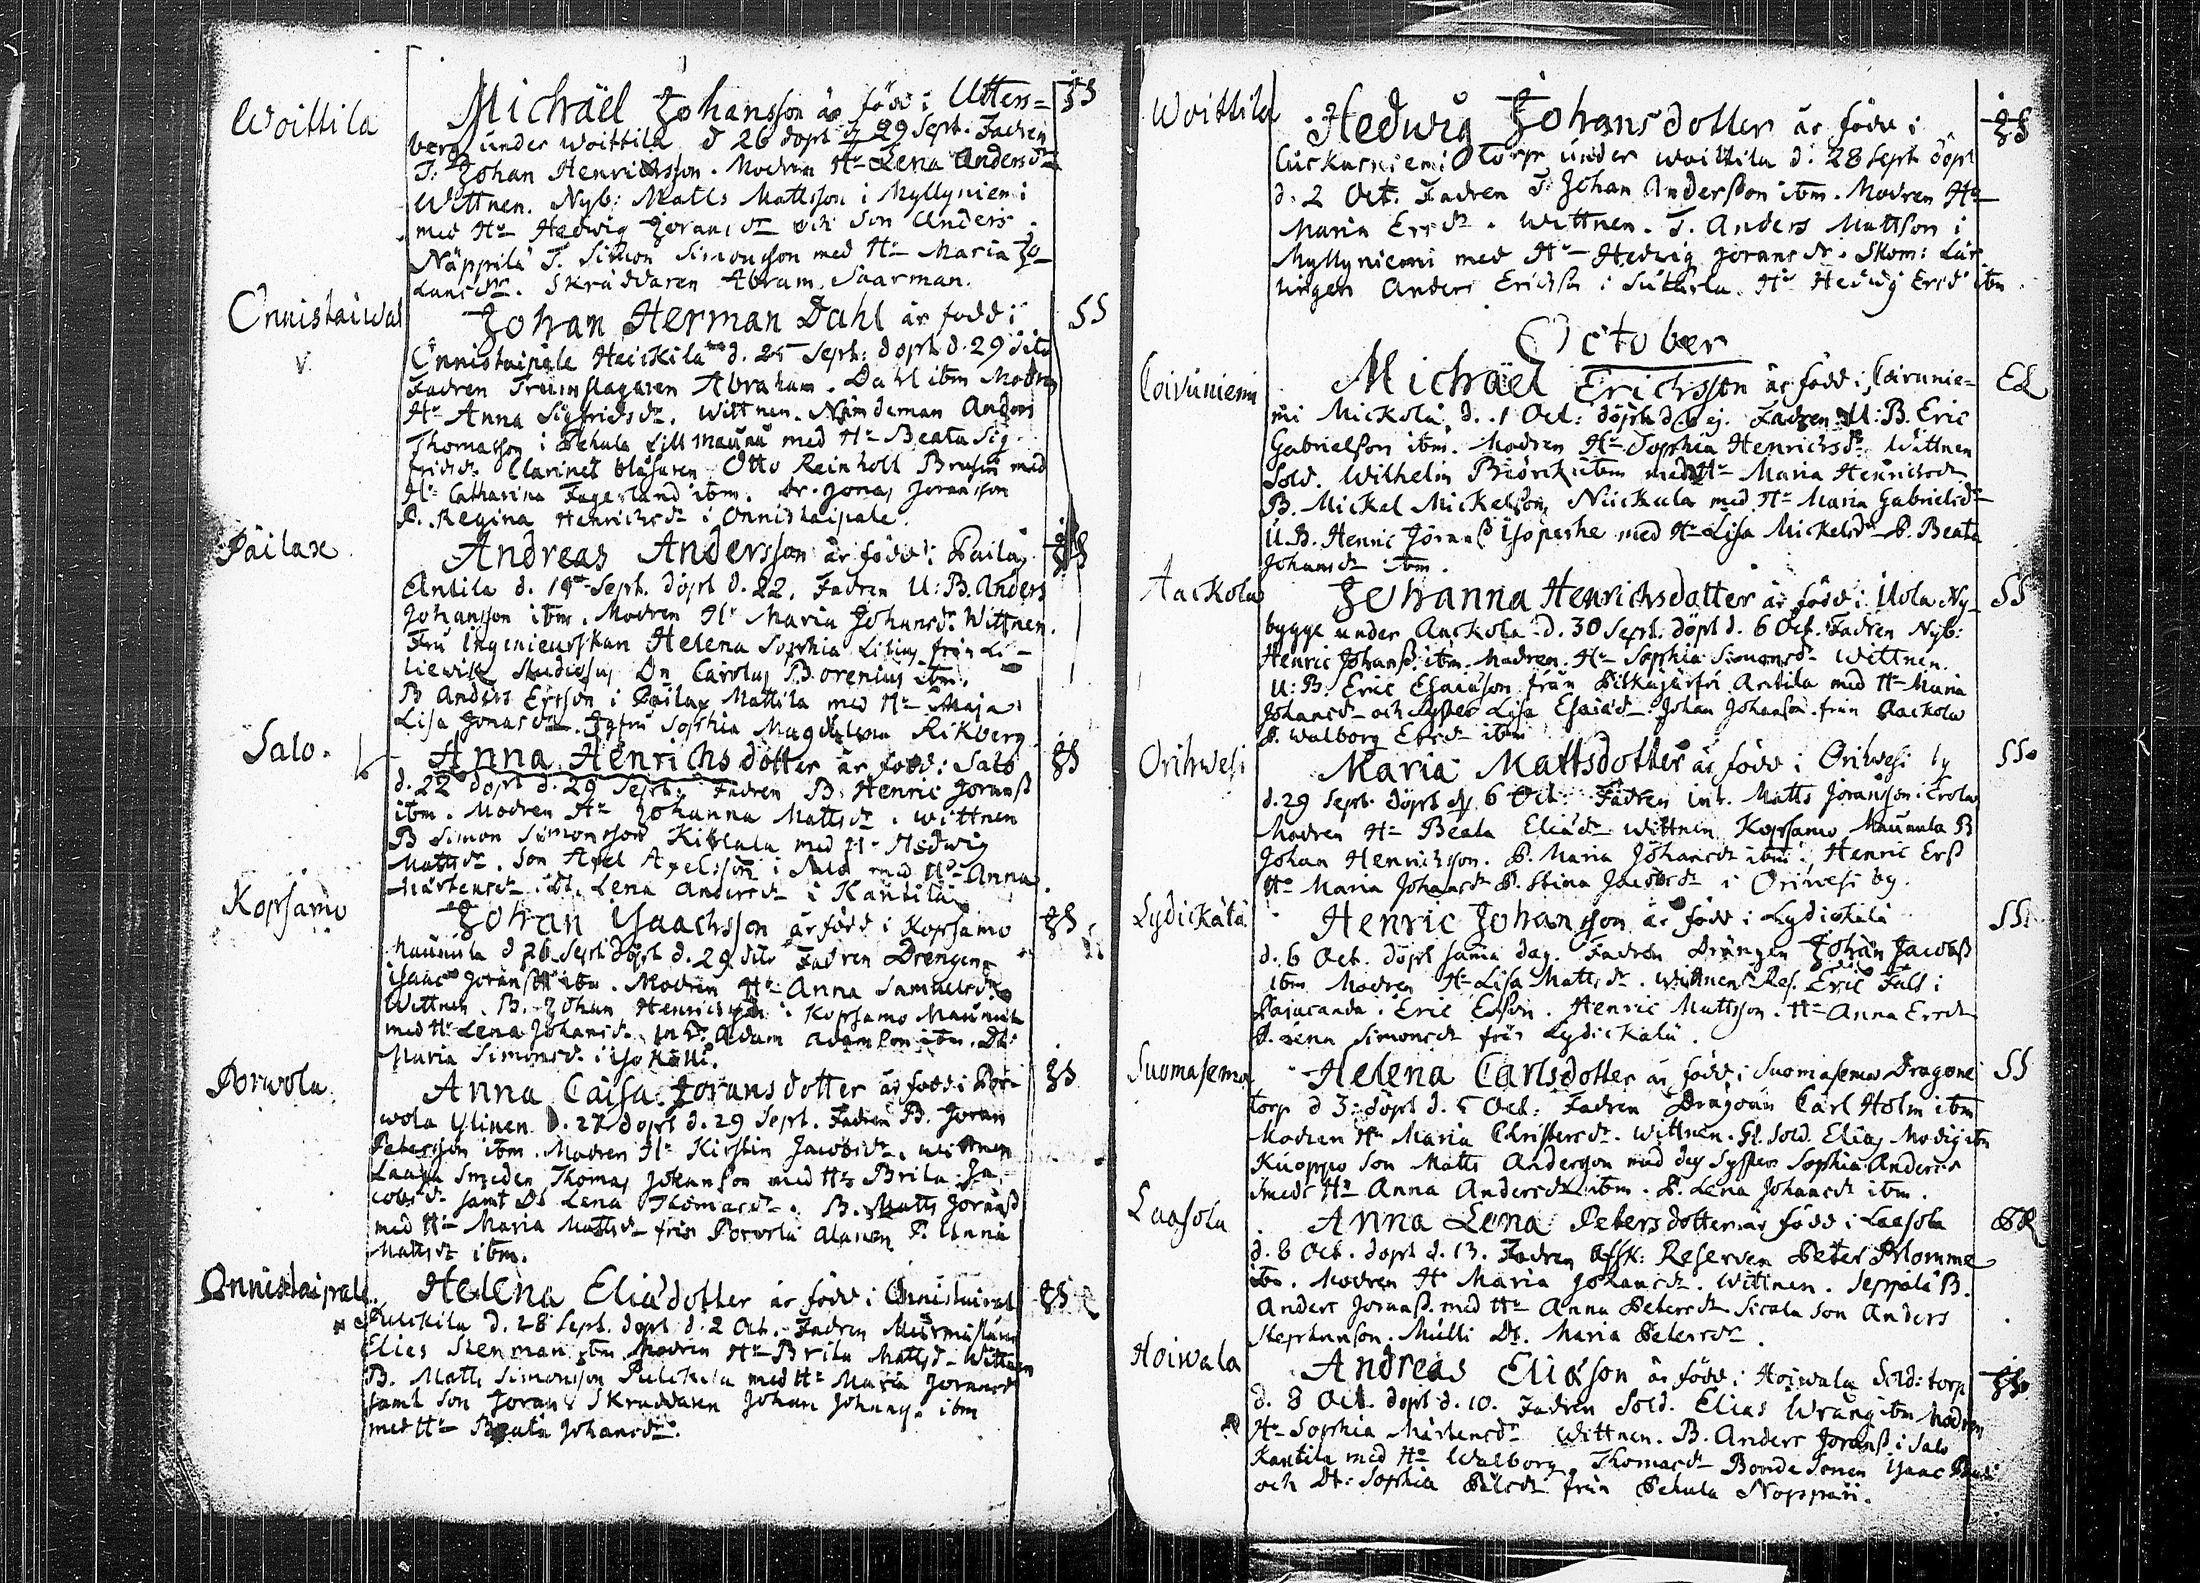 Woittila
Michäel Johansson är född i Utters=
berg under Woittila d 26 döpt d 29 Sept. Fadren
T. Johan Henricksson. Modren Hu Lena Andersdr
Wittnen. Nyb: Matts Mattsson i Myllyniemi
med Hu Hedwig Joransdr och Son Anders
Näppilä T. Simon Simonsson med Hu Maria Jo
Skräddaren Abram Saarman.
SS
Onnistaiwal
Johan Herman Dahl är född i
Onnistaipale Heickilä d. 25 Sept: döpt d. 29 dito
Fadren Trumslagaren Abraham Dahl ibm Modren
Hu Anna Sigfridsdr. Wittnen. Nämdeman Anders
Thomasson i Pehula Lill Maunu med Hu Beata Sig-
fridsdr Clarinet blåsaren Otto Reinholt Brusin med
Hu Catharina Fagerlund ibm. Dr. Jonas Joransson
P. Regina Henrichsdr i Onnistaipale.
Päilax
Andreas Andersson är född i Pailax
Antila d. 19 Sept. döpt d. 22. Fadren U: B. Anders
Johansson ibm. Modren Hu Maria Johansdr. Wittnen.
Fru Ingenieurskan Helena Sophia Lilius från Li-
liewik Studiosus Dn Carolus Borenius ibm.
B Anders Ersson i Pailax Mattila med Hu Maja
Lisa Jonasdr Jgfru Sophia Magdalena Rikberg
Salo.
Anna Henrichsdotter är född i Salo
d. 22 döpt d. 29 Sept: Fadren B: Henric Joranss
ibm. Modren Hu Johanna Mattsdr. Wittnen
B Simon Simonsson med Hu Hedwig
Mattsdr. Son Axel Axelsson i Salo med Hu Anna
Mårtensdr. Dt. Lena Andersdr i Kantila
Kopsamo
Johan Isaachsson är född i Kopsamo
Maunula d 26 Sept döpt d. 29 dito Fadren Drengen
Isaac Joranss ibm. Modren Hu Anna Samuelsdr
Wittnen. B. Johan Henricsson i Kopsamo Maunula
med Hu Lena Johansdr. Inh. Adam Adamson ibm. Dt.
Maria Simonsdr. i Iso Källi.
Porwola
Anna Caisa Joransdotter är född i Por-
wola Ylinen d. 27 döpt d. 29 Sept. Fadren B. Joran
Petersson ibm. Modren Hu Kirstin Jacobsdr. Wittnen
Smeden Thomas Johanson med Hu Brita Ja-
cobsdr samt Dt Lena Thomasdr. B. Matts Joranss
med Hu Maria Mattsdr från Porwola Alanen P. Anna
Mattsdr ibm.
Onnistaipale
Helena Eliädotter är född i Onnistaipal
Pulckila d. 28 Sept. döpt d. 2 Oct. Fadren Murmästaren
Elias Stenman ibm Modren Hu Brita Mattsd Wittnen
B. Matts Simonsson Pulckila med Hu Maria Joransdr
samt Son Joran Skräddaren Johan ibm
med Hu Beata Johansdr.
Woittila
Hedwig Johansdotter är född i
Luckarniemi Torp under Woittila d. 28 Sept döpt
d. 2 Oct. Fadren T. Johan Andersson ibm. Modren Hu
Maria Ersdr. Wittnen. T. Anders Mattson i
Myllyniemi med Hu Hedwig Joransdr. Skom: Lär
lingen Anders Erichson i Suttarla. Hu Hedwig Ersd ibm.
October
Coivuniemi
Michäel Erichsson är född i Coivunie=
mi Mickola, d. 1 Oct: döpt d. 6 ej. Fadren U: B. Eric
Gabrielson ibm. Modren Hu Sophia Henrichsdr. Wittnen
Sold. Wilhelm ibm med Hu Maria Henrichsdr
B. Mickel Mickelson Nuickula med Hu Maria Gabrielsdr
U. B. Henric Joranss Isopashe med Hu Lisa Mickelsdr P. Beata
Johansdr ibm.
EL
Aackola
Johanna Henrichsdotter är född i Uola Ny-
bygge under Aackola d. 30 Sept. döpt d. 6 Oct. Fadren Nyb:
Henric Johanss. ibm. Modren Hu Sophia Simonsdr. Wittnen.
U: B. Eric Esaiasson från Pitkäjärfvi Antila med Hu Maria
Johansdr och Syster Lisa Esaiad. Johan Johanson från Aackola
P. Walborg Ersdr ibm
SS
Orihwesi
Maria Mattsdotter är född i Orihwesi by
d. 29 Sept. döpt d. 6 Oct. Fadren inh. Matts Joransson Erola
Modren Hu Beata Eliädr Wittnen Kopsamo Maunula B
Johan Henricksson. P. Maria Johansdr ibm. Henric Erss
Hu Maria Johansdr P. Stina Jacobsdr i Oriwesi by.
SS.
Lydickälä
Henric Johansson är född i Lydickälä
d. 6 Oct. döpt sama dag. Fadren Drängen Johan Jacobss
ibm Modren Hu Lisa Mattsdr. Wittnen Res. Eric Fält i
Pajucanda. Eric Erson. Henric Mattsson. Hu Anna Ersdr
P. Lena Simonsdr från Lydickälä.
SS.
Suomasema
Helena Carlsdotter är född i Suomasema Dragone
torp d 3: döpt d. 5 Oct: Fadren Dragoun Carl Holm ibm
Modren Hu Maria Christersdr. Wittnen. Gl. Sold. Elias Modig ibm
Kuoppo Son Matts Andersson med des Syster Sophia Andersd
Smeds Hu Anna Andersdr ibm. P. Lena Johansdr ibm.
SS
Laasola
Anna Lena Petersdotter är född i Laasola
d. 8 Oct. döpt d. 13. Fadren Afsk: Reserven Peter Blomme
ibm. Modren Hu Maria Johansdr. Wittnen. Seppälä B.
Anders Joranss. med Hu Anna Petersdr Sicala Son Anders
Stephanson. Mulli Dt. Maria Petersdr.
Hoiwala
Andreas Eliäson är född i Hoiwala Sold: torp
d. 8 Oct. döpt d. 10. Fadren Sold. Elias Wrång ibm Modren
Hu Sophia Mårtensdr Wittnen. B. Anders Joranss i Salo
Kantila med Hu Walborg Thomasdr Bonde Sonen Isaac
och Dt: Sophia Pålsdr från Pehula Noppari.